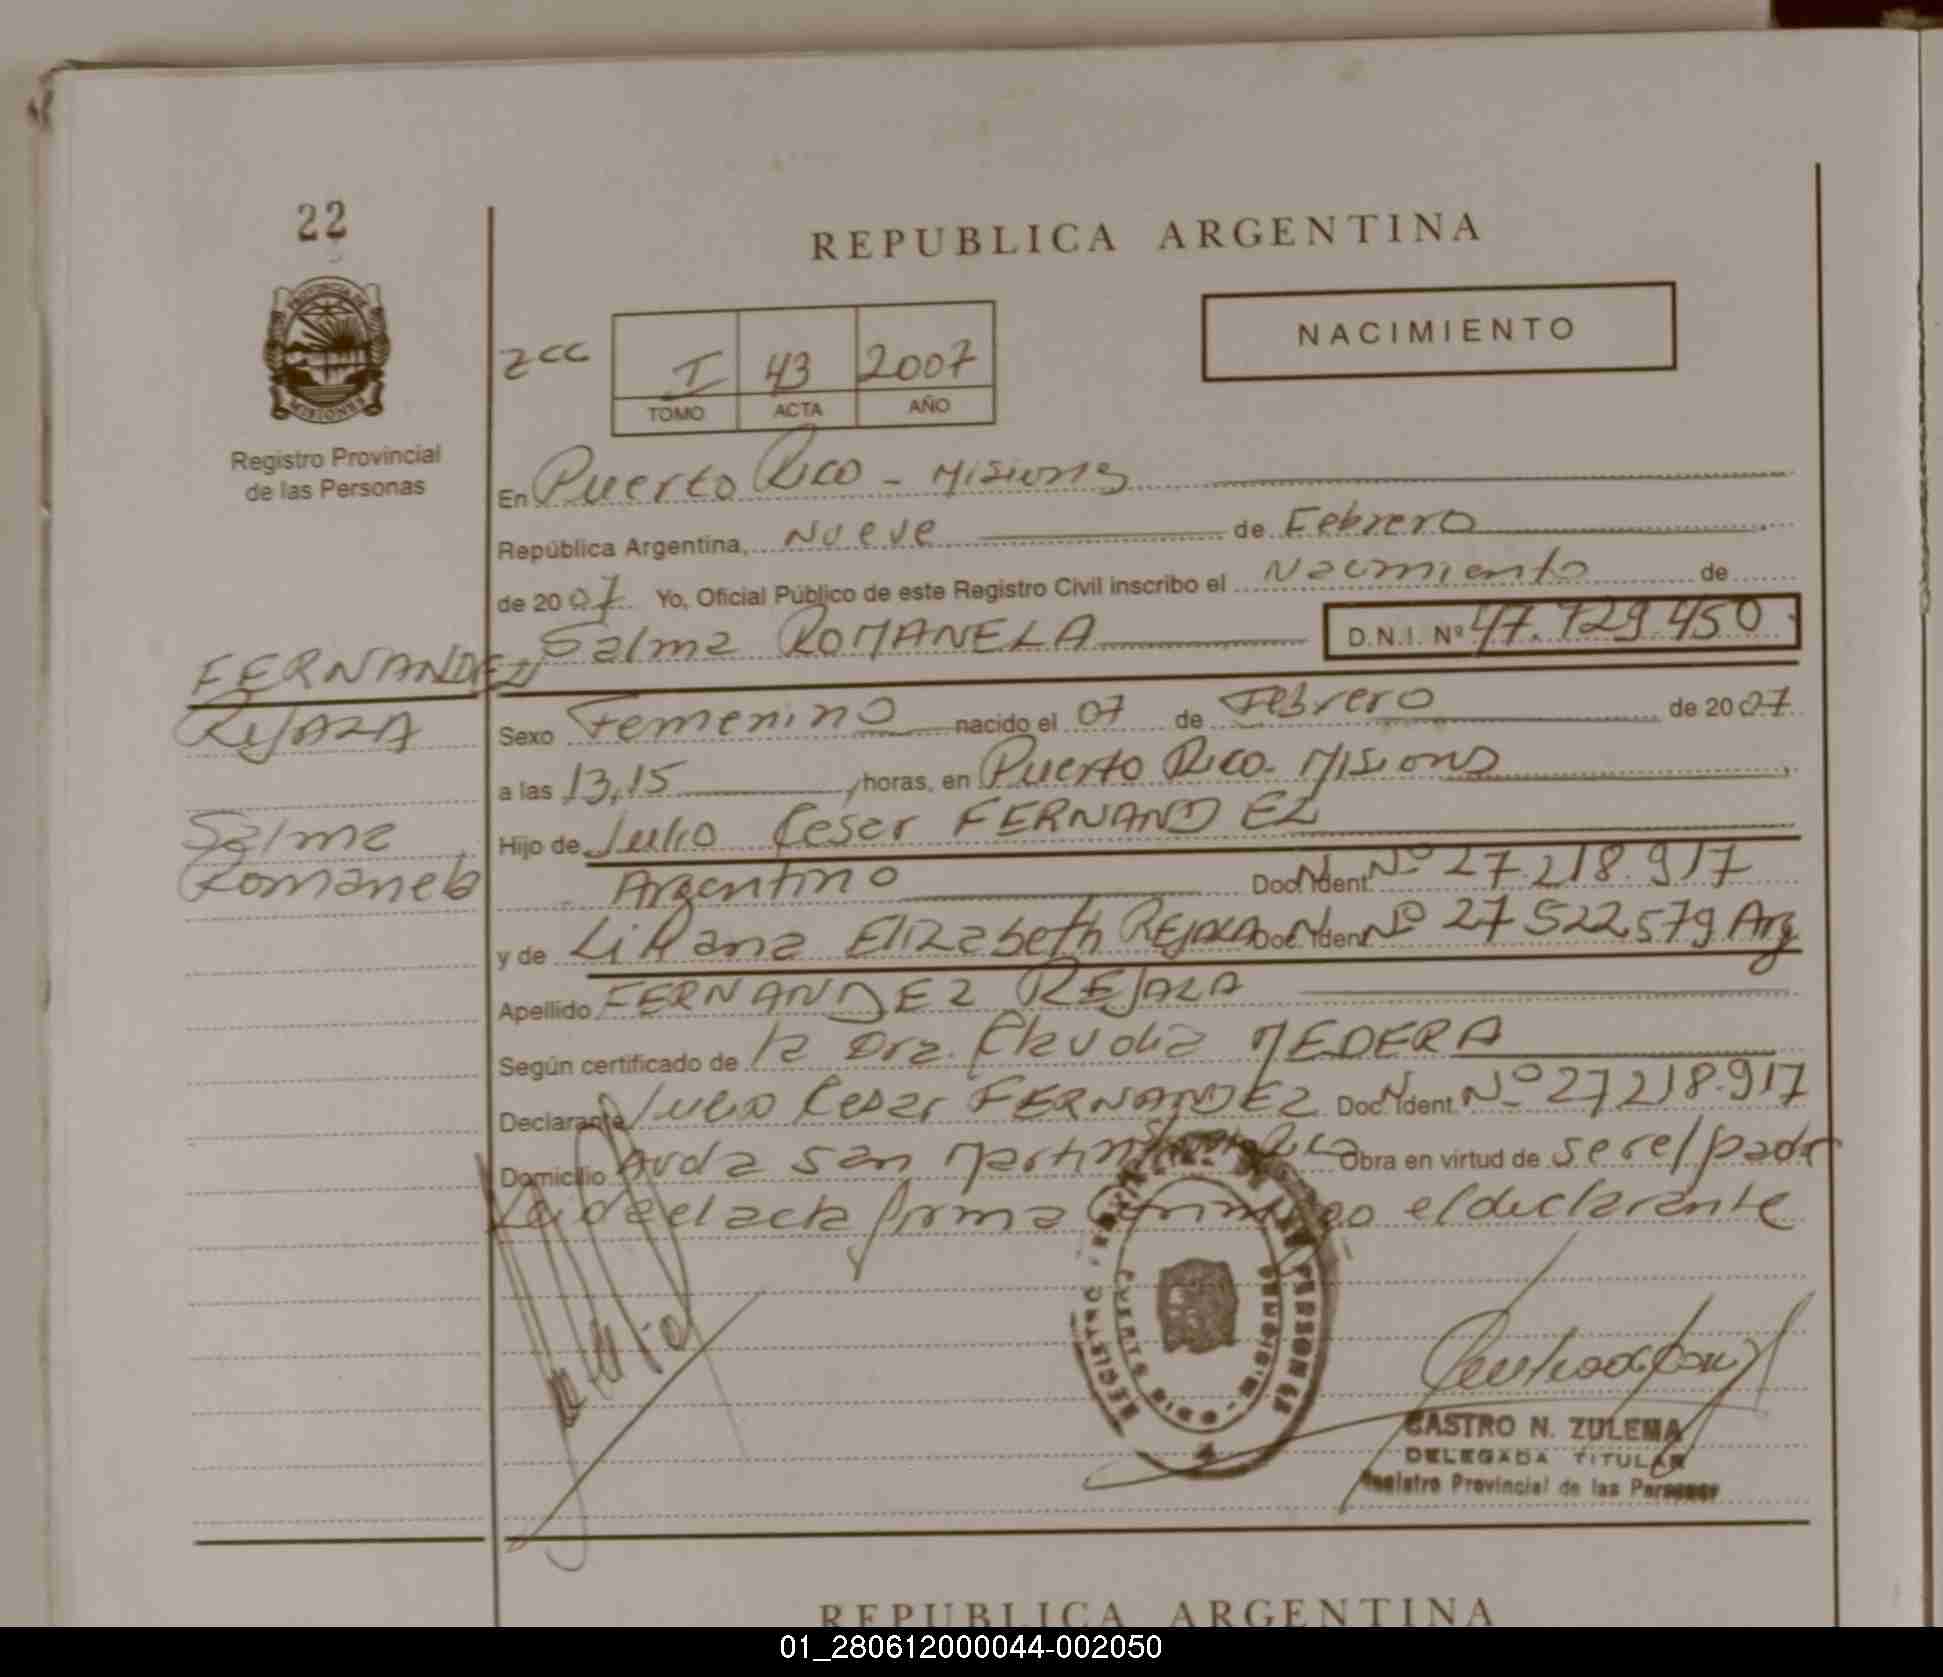 22
REPUBLICA ARGENTINA
PROVINCIA DE
MISIONES
Registro Provincial
de las Personas
NACIMIENTO
zcc
I 43 2007
TOMO ACTA AÑO
En Puerto Rico - Misiones
República Argentina, Nueve de Febrero
de 2007 Yo, Oficial Público de este Registro Civil inscribo el Nacimiento de
Salma ROMANELA D.N.I. Nº 47.729.450
FERNANDEZ
REJALA
Salma
Romanela
Sexo Femenino nacido el 07 de Febrero de 2007
a las 13,15 horas, en Puerto Rico - Misiones
Hijo de Julio Cesar FERNANDEZ
Argentino Doc. Ident. N Nº 27.218.917
y de Liliana Elizabeth REJALA Doc. Ident. N Nº 27 522.579 Arg
Apellido FERNANDEZ REJALA
Según certificado de la Dra. Claudia MEDERA
Declarante Julio Cesar FERNANDEZ Doc. Ident. N Nº 27218.917
Domicilio Avda San Martin Obra en virtud de ser el padre
Leida el acta firma conmigo el declarante
REGISTRO PROVINCIAL DE LAS PERSONAS
MISIONES
CASTRO N. ZULEMA
DELEGADA TITULAR
Registro Provincial de las Personas
REPUBLICA ARGENTINA
01_280612000044-002050